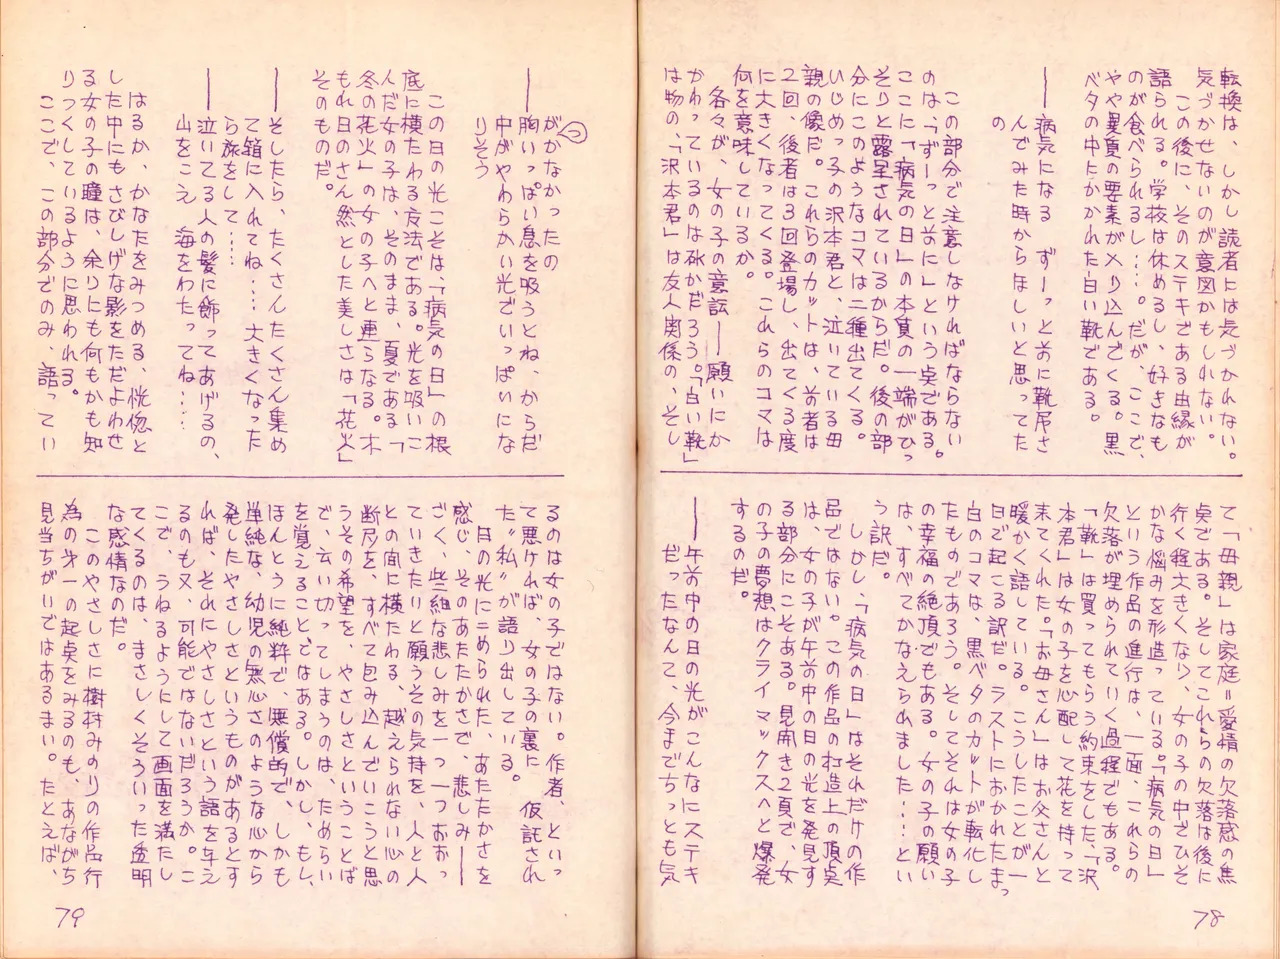 転換は、しかし読者には気づかれない。
気づかせないのが意図かもしれない。
この後に、そのステキである由縁が
語られる。学校は休めるし、好きなも
のが食べられるし……。だが、ここで、
やや異質の要素がメリ込んでくる。黒
ベタの中にかかれた白い靴である。
──病気になる ずーっと前に靴屋さ
んでみた時からほしいと思ってた
の
この部分で注意しなければならない
のは、「ずーっと前に」という点である。
ここに「病気の日」の本質の一端がひっ
そりと露呈されているからだ。後の部
分にこのようなコマは二種出てくる。
いじめっ子の沢本君と、泣いている母
親の像だ。これらのカットは、前者は
2回、後者は3回登場し、出てくる度
に大きくなってくる。これらのコマは
何を意味しているか。
各々が、女の子の意訟──願いにか
かわっているのは確かだろう。「白い靴」
は物の、「沢本君」は友人関係の、そし
て「母親」は家庭=愛情の欠落感の焦
点である。そしてこれらの欠落は後に
行く程大きくなり、女の子の中でひそ
かな悩みを形造っている。「病気の日」
という作品の進行は、一面、これらの
欠落が埋められていく過程でもある。
「靴」は買ってもらう約束をした、「沢
本君」は女の子を心配して花を持って
来てくれた。「お母さん」はお父さんと
暖かく語している。こうしたことが一
日で起こる訳だ。ラストにおかれたまっ
白のコマは、黒ベタのカットが転化し
たものであろう。そしてそれは女の子
の幸福の絶頂でもある。女の子の願い
は、すべてかなえられました……とい
う訳だ。
しかし、「病気の日」はそれだけの作
品ではない。この作品の構造上の頂点
は、女の子が午前中の日の光を発見す
る部分にこそある。見開き2頁で、女
の子の夢想はクライマックスへと爆発
するのだ。
──午前中の日の光がこんなにステキ
だったなんて、今までちっとも気
がつかなかったの
──胸いっぱい息を吸うとね、からだ
中がやわらかい光でいっぱいにな
りそう
この日の光こそは、「病気の日」の根
底に横たわる方法である。光を吸いこ
んだ女の子は、そのまま、夏である「
冬の花火」の女の子へと連らなる。木
もれ日のさん然とした美しさは「花火」
そのものだ。
──そしたら、たくさんたくさん集め
て箱に入れてね……大きくなった
ら旅をして……
──泣いてる人の髪に飾ってあげるの、
山をこえ 海をわたってね……
はるか、かなたをみつめる、恍惚と
した中にもさびしげな影をただよわせ
る女の子の瞳は、余りにも何もかも知
りつくしているように思われる。
ここで、この部分でのみ、語ってい
るのは女の子ではない。作者、といっ
て悪ければ、女の子の裏に 仮託され
た〝私〟が語り出している。
日の光にこめられた、あたたかさを
感じ、そのあたたかさで、悲しみ──
ざくざく、些細な悲しみを一つ一つおおっ
ていきたいと願うその気持を、人と人
との間に横たわる、越えられない心の
断片を、すべて包み込んでいこうと思
うその希望を、やさしさということば
で、云い切ってしまうのは、ためらい
を覚えることではある。しかし、もし、
ほんとうに純粋で、無償的で、しかも
単純な、幼児の無心さのような心から
発したやさしさというものがあるとす
れば、それにやさしさという語を与え
るのも又、可能ではないだろうか。こ
こで、うねるようにして画面を満たし
てくるのは、まさしくそういった透明
な感情なのだ。
このやさしさに樹村みのりの作品行
為の才一の起点をみるのも、あながち
見当ちがいではあるまい。たとえば、
78
79